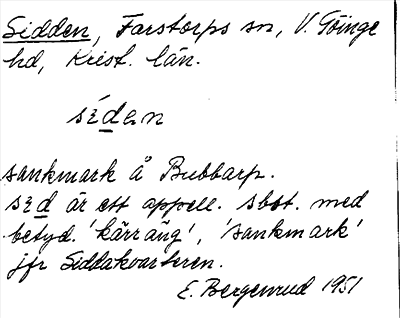 Sidden, Farstorps sn, V. Göinge
hd, Krist. län.
síden
sankmark å Bubbarp.
sid är ett appell. sbst. med
betyd. 'kärräng', 'sankmark'
jfr Siddakvarteren.
E. Bergenrud 1951